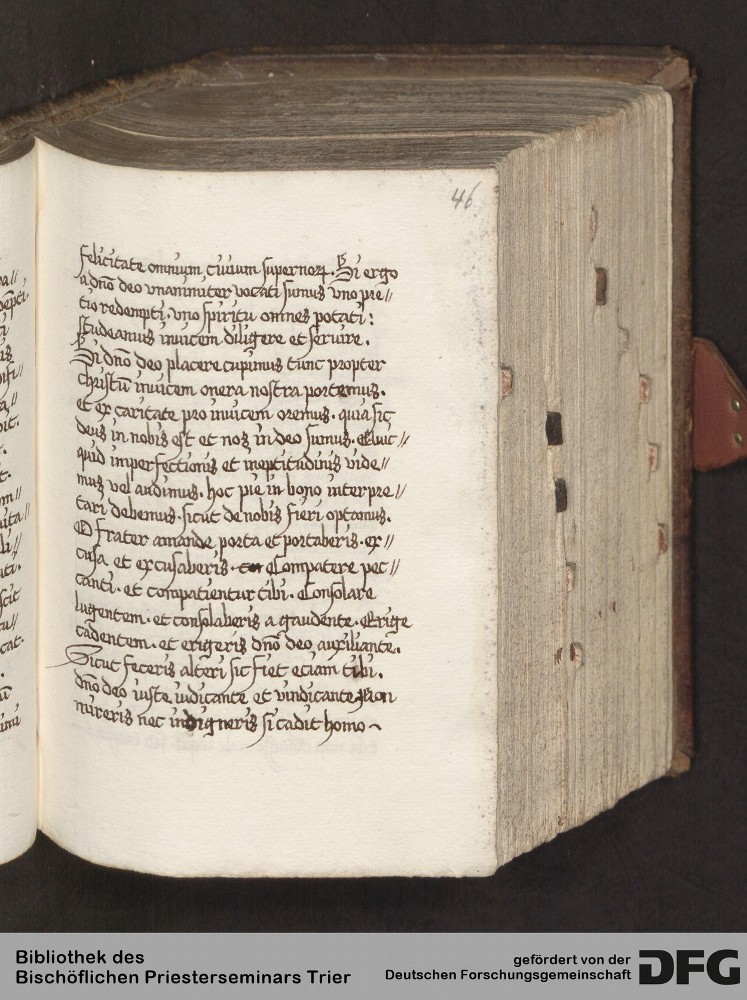 46
felicitate omnium ciuium supernoꝝ. Si ergo
a dño deo vnanimiter vocati sumus vno pre//
tio redempti. vno spiritu omnes potati:
studeamus inuicem diligere et seruire.
Si dño deo placere cupimus tunc propter
christū inuicem onera nostra portemus.
et ex caritate pro inuicem oremus. quia sic
deus in nobis est et nos in deo sumus. Quic//
quid imperfectionis et ineptitudinis vide//
mus vel audimus. hoc pie in bono interpre//
tari debemus. sicut de nobis fieri optamus.
O frater amande porta et portaberis. ex//
cusa et excusaberis. Compatere pec//
canti. et compatientur tibi. Consolare
lugentem. et consolaberis a gaudente. Erige
cadentem. et erigeris dño deo auxiliante.
Sicut feceris alteri sic fiet eciam tibi.
dño deo iuste iudicante et vindicante Non
mireris nec indigneris si cadit homo
Bibliothek des
Bischöflichen Priesterseminars Trier
gefördert von der
Deutschen Forschungsgemeinschaft
DFG